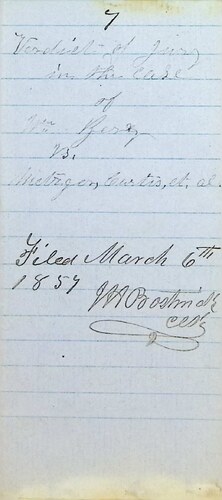 7
Verdict of Jury
in the case
of
Wm
vs.
Curtis, et. al
Filed March 6th
1857
Clk